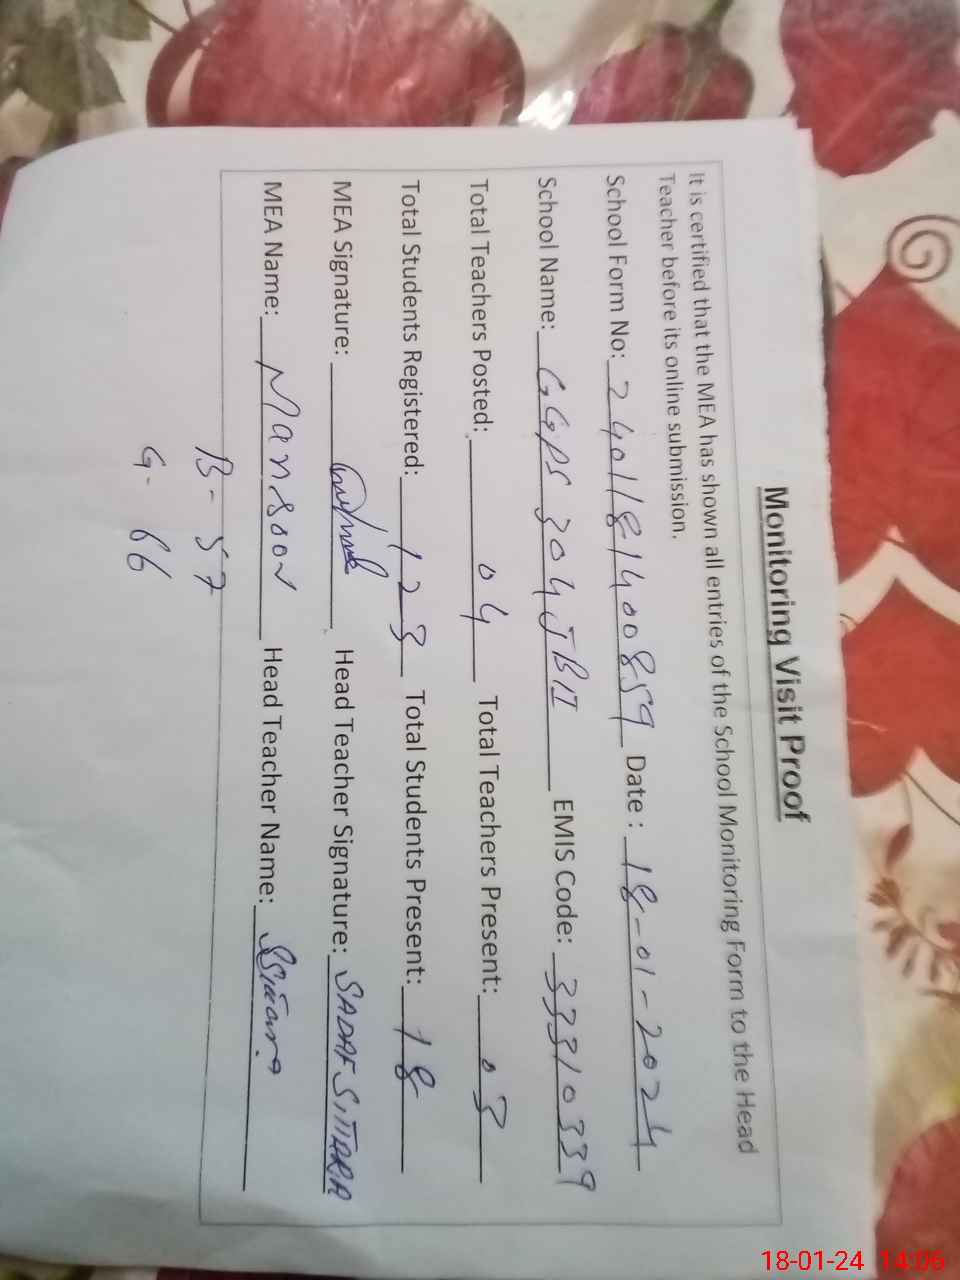 Monitoring Visit Proof
It is certified that the MEA has shown all entries of the School Monitoring Form to the Head
Teacher before its online submission.
School Form No: 2401181400859 Date : 18-01-2024
School Name: GGPS 304 JBII EMIS Code: 33310339
Total Teachers Posted: 04 Total Teachers Present: 03
Total Students Registered: 123 Total Students Present: 18
MEA Signature: Head Teacher Signature: SADAF SITARA
MEA Name: Mansoor Head Teacher Name:
B - 57
G - 66
18-01-24 14:06